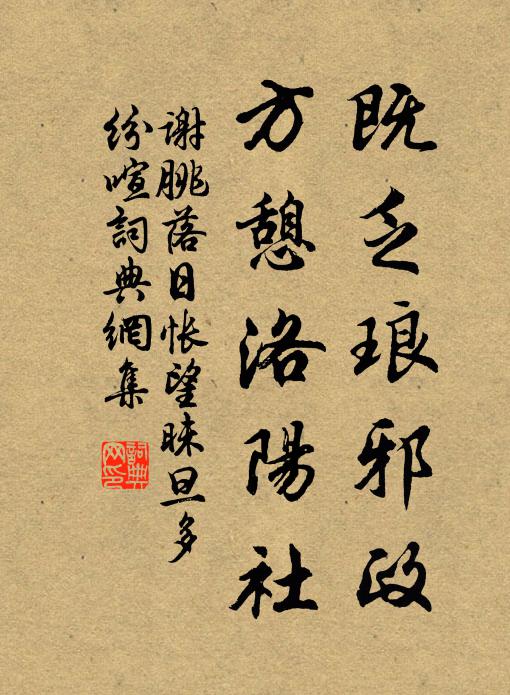 既乏琅邪政
方憩洛陽社
謝朓落日悵望昧旦多
紛喧詞典網集
詞典
网印